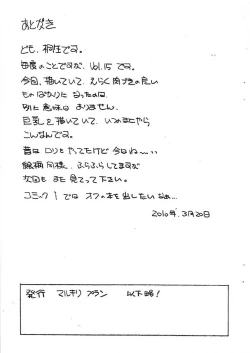 あとがき
ども、桐生です。
毎度のことですが、Vol.15 です。
今回、描いていて、えらく肉づきの良い
ものばかりに なったのは、
別に意味は ありません。
巨乳を描いていて、いつのまにやら
こんなんです。
昔は ロリも やってたけど 今はね…
絵柄同様、ふらふらしてますが
次回も また 見てって下さい。
コミック1では オフの本を出したいなぁ…
2010年、3月20日
発行 マルキリプラン 以下略！